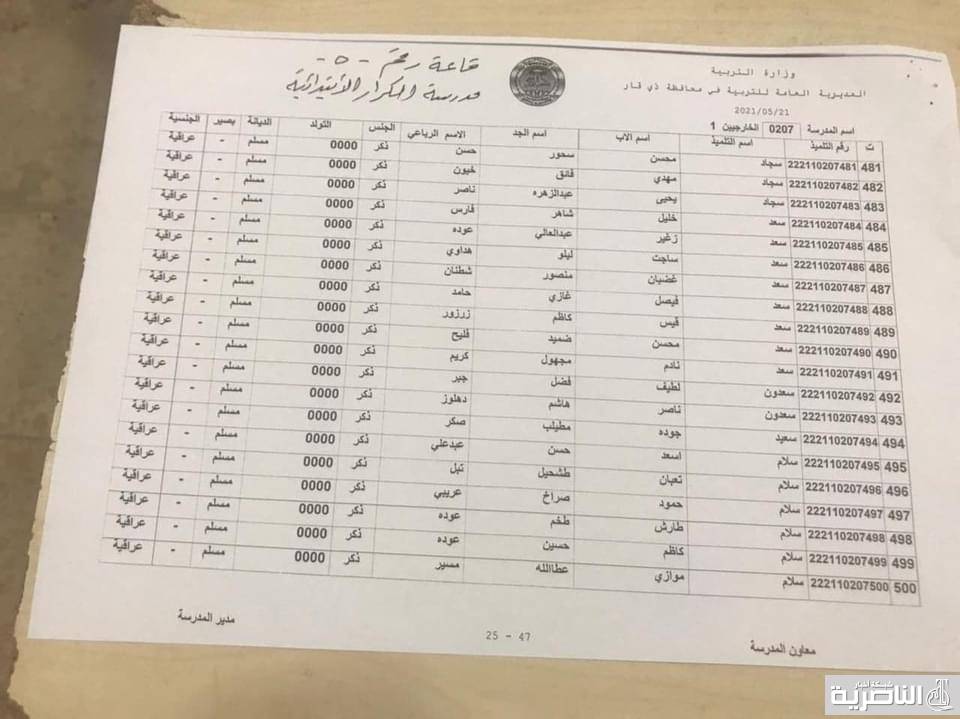 وزارة التربية
المديرية العامة للتربية في محافظة ذي قار
2021/05/21
قاعة رقم -٥-
مدرسة الكرار الأبتدائية
اسم المدرسة 0207 الخارجيين 1
ت رقم التلميذ اسم التلميذ اسم الاب اسم الجد الاسم الرباعي الجنس التولد الديانة بصير الجنسية
481 222110207481 سجاد محسن سحور حسن ذكر 0000 مسلم - عراقية
482 222110207482 سجاد مهدي فائق خيون ذكر 0000 مسلم - عراقية
483 222110207483 سجاد يحيى عبدالزهره ناصر ذكر 0000 مسلم - عراقية
484 222110207484 سعد خليل شاهر فارس ذكر 0000 مسلم - عراقية
485 222110207485 سعد زغير عبدالعالي عوده ذكر 0000 مسلم - عراقية
486 222110207486 سعد ساجت ليلو هداوي ذكر 0000 مسلم - عراقية
487 222110207487 سعد غضبان منصور شطنان ذكر 0000 مسلم - عراقية
488 222110207488 سعد فيصل غازي حامد ذكر 0000 مسلم - عراقية
489 222110207489 سعد قيس كاظم زرزور ذكر 0000 مسلم - عراقية
490 222110207490 سعد محسن ضميد فليح ذكر 0000 مسلم - عراقية
491 222110207491 سعد نادم مجهول كريم ذكر 0000 مسلم - عراقية
492 222110207492 سعدون لطيف فضل جبر ذكر 0000 مسلم - عراقية
493 222110207493 سعدون ناصر هاشم دهلوز ذكر 0000 مسلم - عراقية
494 222110207494 سعيد جوده مطيلب صكر ذكر 0000 مسلم - عراقية
495 222110207495 سلام اسعد حسن عبدعلي ذكر 0000 مسلم - عراقية
496 222110207496 سلام تعبان طشحيل تبل ذكر 0000 مسلم - عراقية
497 222110207497 سلام حمود صراخ عريبي ذكر 0000 مسلم - عراقية
498 222110207498 سلام طارش طخم عوده ذكر 0000 مسلم - عراقية
499 222110207499 سلام كاظم حسين عوده ذكر 0000 مسلم - عراقية
500 222110207500 سلام موازي عطاالله مسير ذكر 0000 مسلم - عراقية
معاون المدرسة
25 - 47
مدير المدرسة
شبكة أخبار
الناصرية